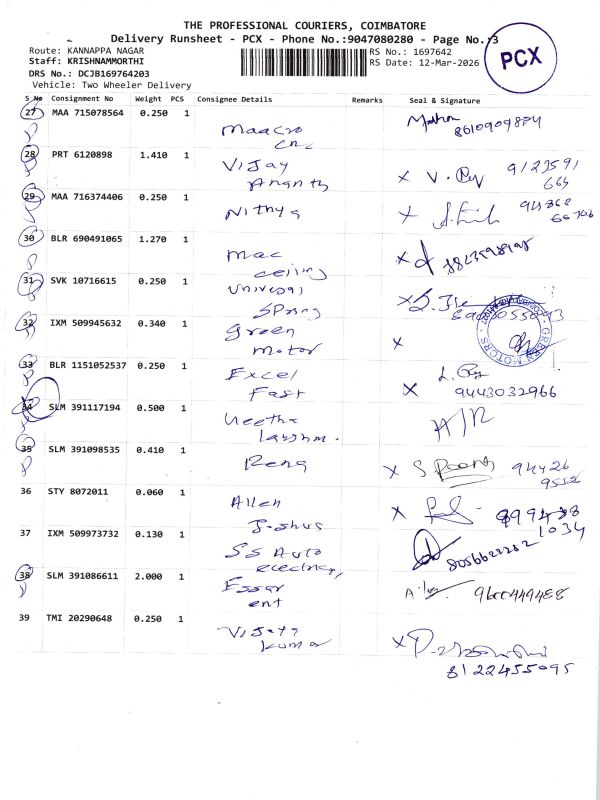 THE PROFESSIONAL COURIERS, COIMBATORE
Delivery Runsheet - PCX - Phone No.:9047080280 - Page No.:3
Route: KANNAPPA NAGAR
RS No.: 1697642
Staff: KRISHNAMMORTHI
RS Date: 12-Mar-2026
DRS No.: DCJB169764203
Vehicle: Two Wheeler Delivery
PCX
S No Consignment No Weight PCS Consignee Details Remarks Seal & Signature
27 MAA 715078564 0.250 1
Maacro
cnc
28 PRT 6120898 1.410 1 Vijay
Ananth
29 MAA 716374406 0.250 1
Nithya
30 BLR 690491065 1.270 1
Mac
ceiling
31 SVK 10716615 0.250 1 Universal
Spring
32 IXM 509945632 0.340 1 Green
motor
GREEN MOTORS
33 BLR 1151052537 0.250 1 Excel
Fast
9443032966
34 SLM 391117194 0.500 1
35 SLM 391098535 0.410 1
94426
36 STY 8072011 0.060 1 Allen
Joshua
37 IXM 509973732 0.130 1 SS Auto
electrical
8056622262
38 SLM 391086611 2.000 1 Essar
ent
9600449488
39 TMI 20290648 0.250 1
Vijaya
kumar
8122455095